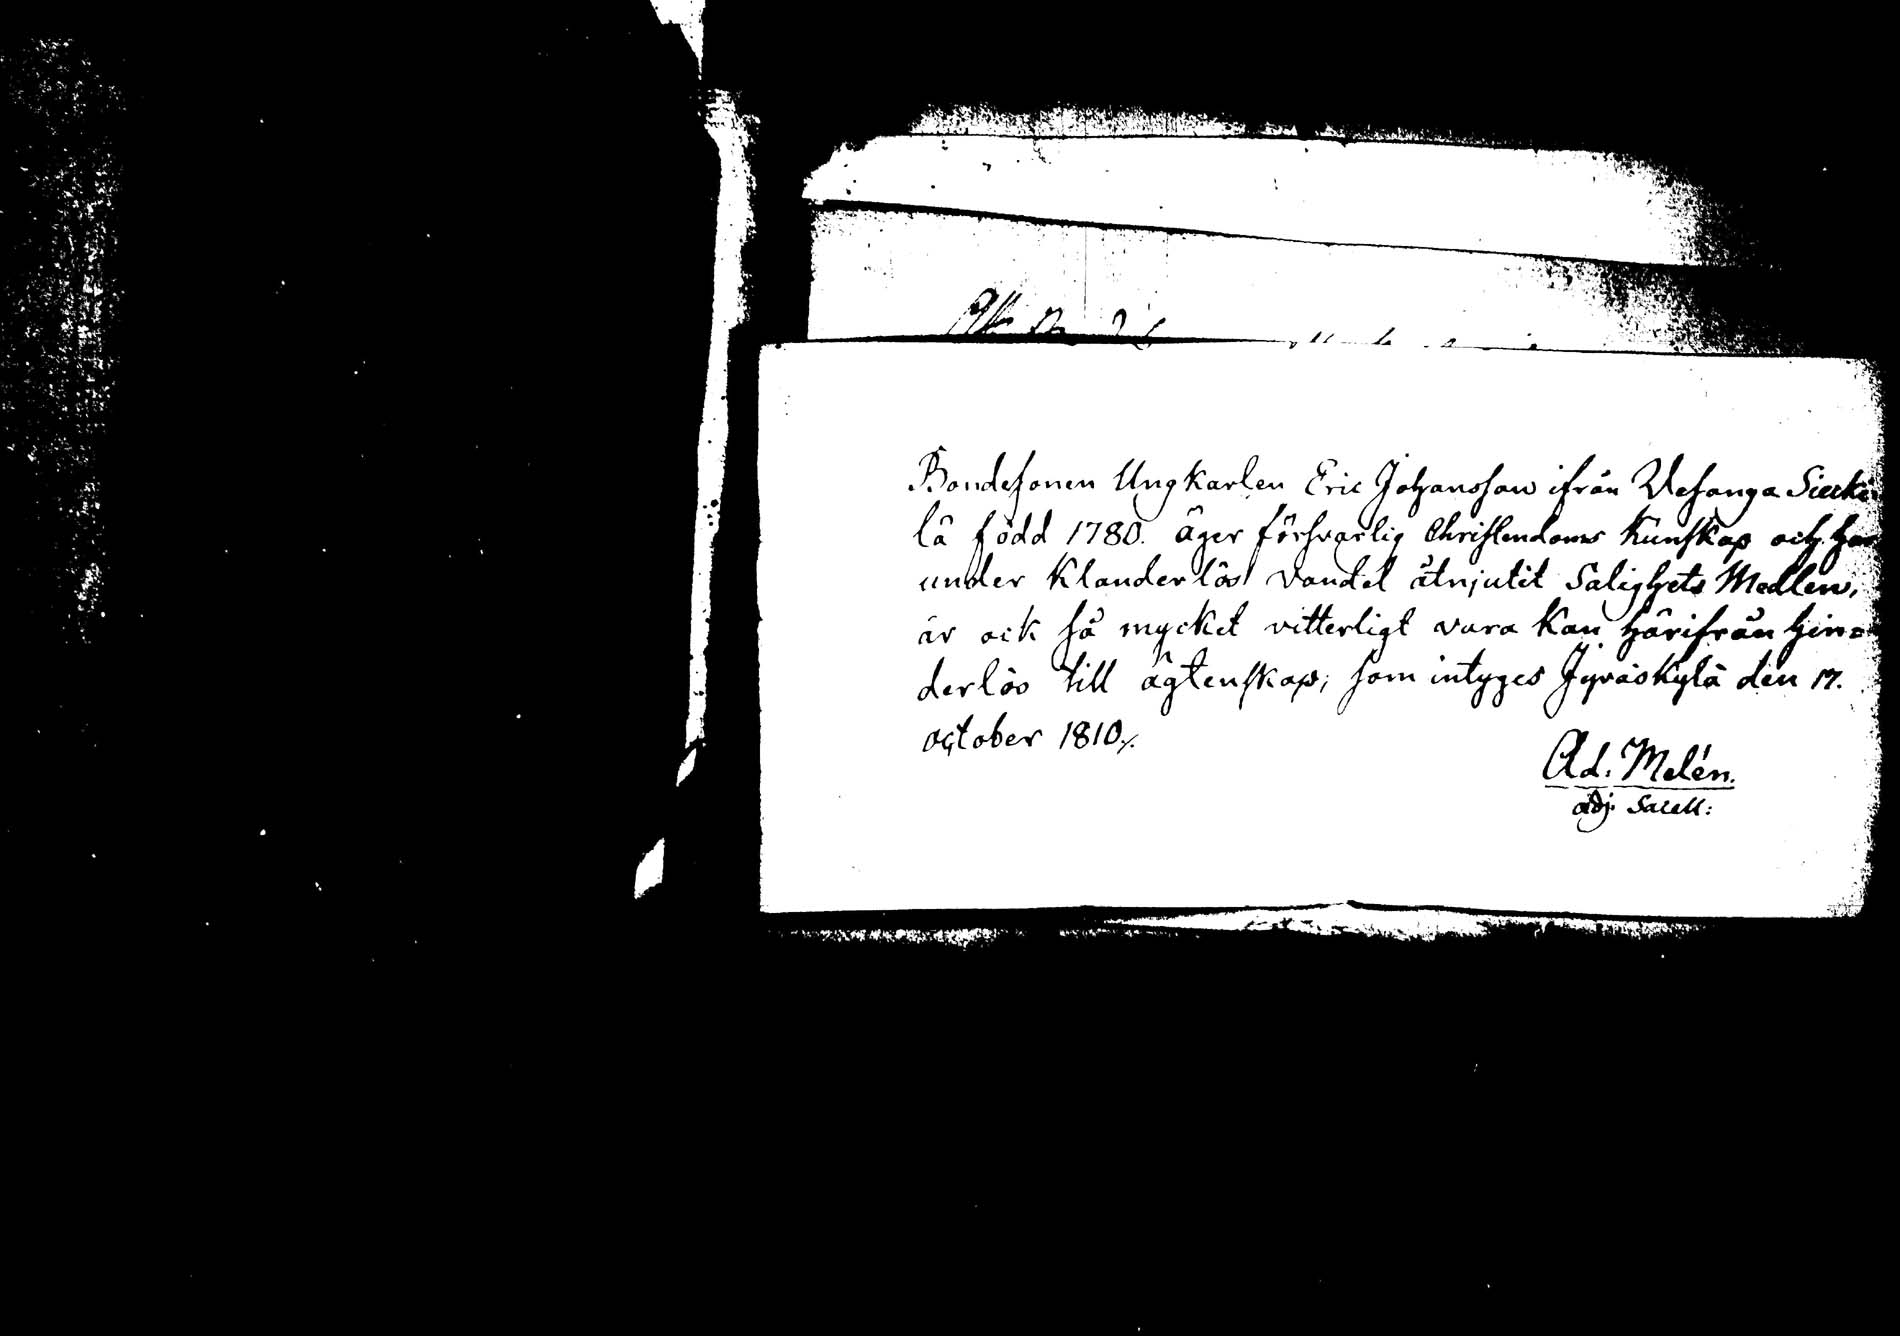 Bondesonen Ungkarlen Eric Johansson ifrån Vesanga Siecki
lä född 1780. äger försvarlig Christendoms Kunskap och har
under Klanderlös vandel åtnjutit Salighets Medlen,
är ock så mycket vitterligt vara kan härifrån hin=
derlös till ägtenskap; som intyges Jyväskylä den 17.
october 1810./.
Ad: Melén.
adj. Sacell: